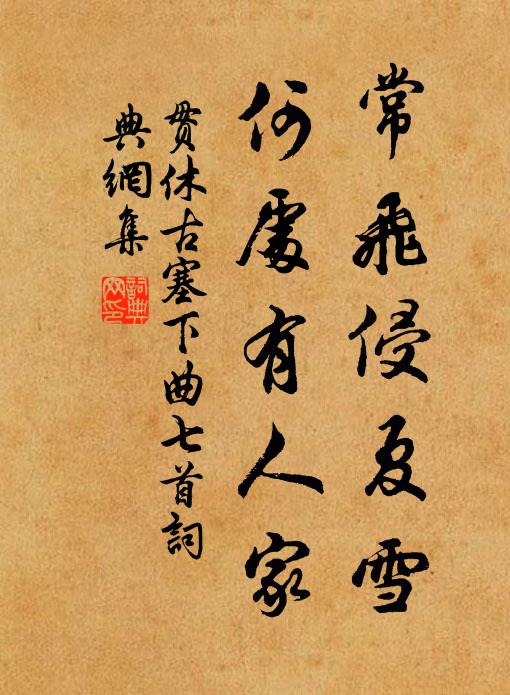 常飛侵夏雪
何處有人家
貫休古塞下曲七首詞
典網集
詞典
网印